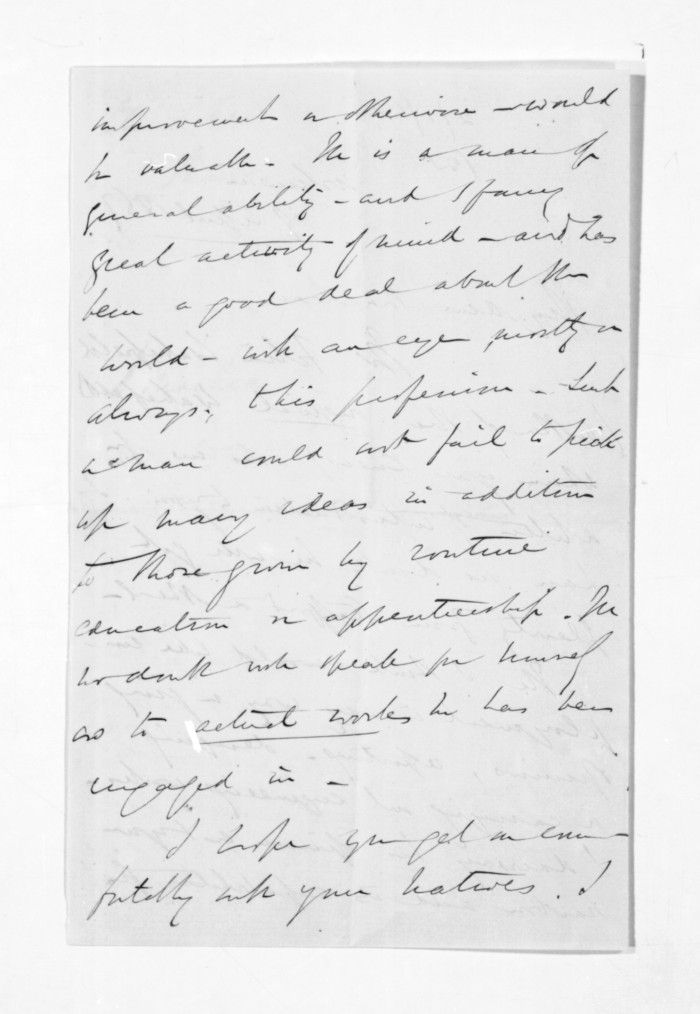 improvement or otherwise – would
be valuable – He is a man of
general ability – and I fancy
great activity of mind – and has
been a good deal about the
world – with an eye, mostly or
always, to his profession – Such
a man could not fail to pick
up many ideas in addition
to those given by routine
education or apprenticeship. He
no doubt will speak for himself
as to actual works he has been
engaged in –
I hope you get on com-
fortably with your Natives. I